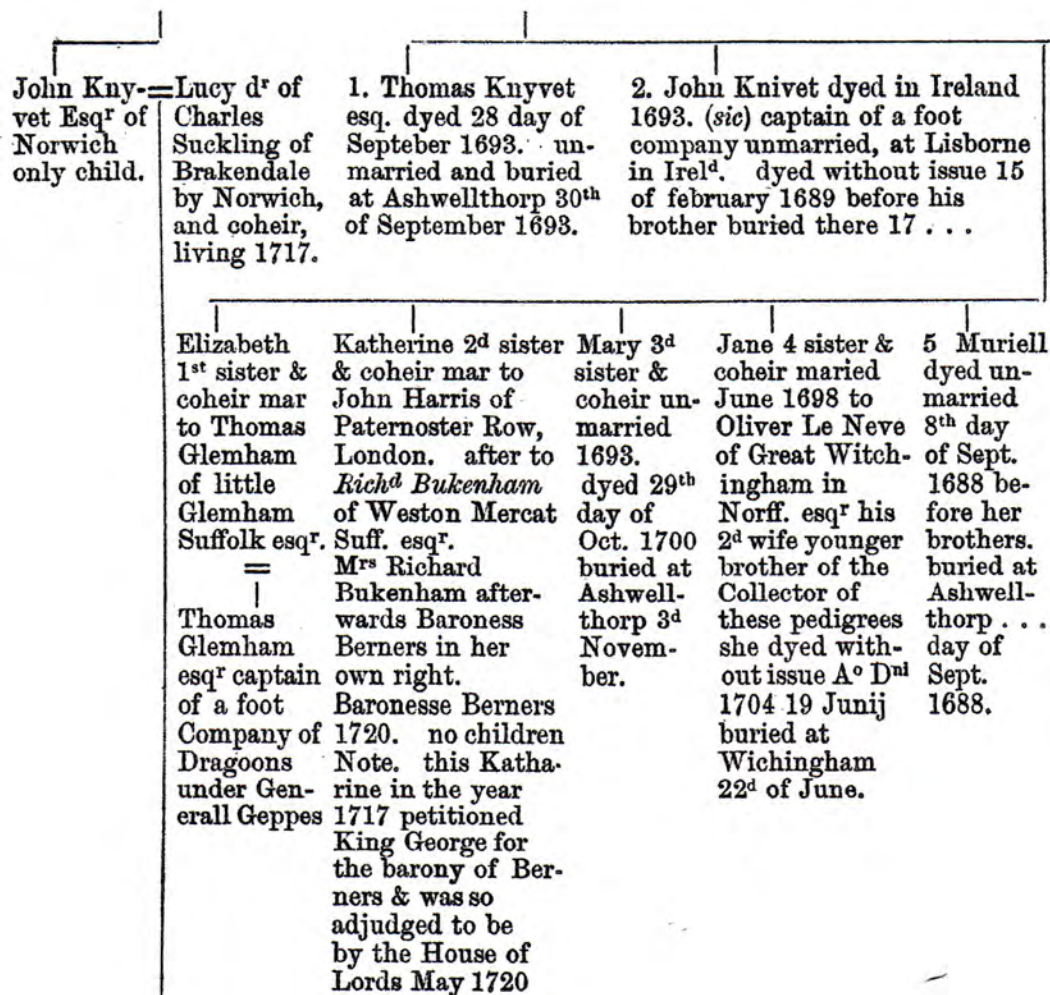 John Kny-
vet Esqr of
Norwich
only child.
=
Lucy dr of
Charles
Suckling of
Brakendale
by Norwich,
and coheir,
living 1717.
1. Thomas Knyvet
esq. dyed 28 day of
Septeber 1693. un-
married and buried
at Ashwellthorp 30th
of September 1693.
2. John Knivet dyed in Ireland
1693. (sic) captain of a foot
company unmarried, at Lisborne
in Ireld. dyed without issue 15
of february 1689 before his
brother buried there 17 . . .
Elizabeth
1st sister &
coheir mar
to Thomas
Glemham
of little
Glemham
Suffolk esqr.
=
Thomas
Glemham
esqr captain
of a foot
Company of
Dragoons
under Gen-
erall Geppes
Katherine 2d sister
& coheir mar to
John Harris of
Paternoster Row,
London. after to
Richd Bukenham
of Weston Mercat
Suff. esqr.
Mrs Richard
Bukenham after-
wards Baroness
Berners in her
own right.
Baronesse Berners
1720. no children
Note. this Katha-
rine in the year
1717 petitioned
King George for
the barony of Ber-
ners & was so
adjudged to be
by the House of
Lords May 1720
Mary 3d
sister &
coheir un-
married
1693.
dyed 29th
day of
Oct. 1700
buried at
Ashwell-
thorp 3d
Novem-
ber.
Jane 4 sister &
coheir maried
June 1698 to
Oliver Le Neve
of Great Witch-
ingham in
Norff. esqr his
2d wife younger
brother of the
Collector of
these pedigrees
she dyed with-
out issue Ao Dni
1704 19 Junij
buried at
Wichingham
22d of June.
5 Muriell
dyed un-
married
8th day
of Sept.
1688 be-
fore her
brothers.
buried at
Ashwell-
thorp . . .
day of
Sept.
1688.